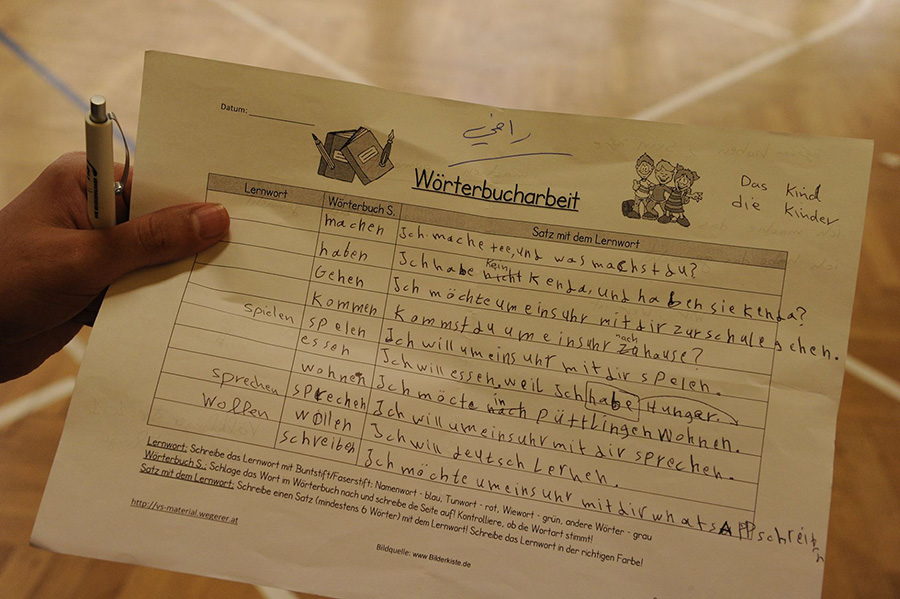 Datum:
راضي
Wörterbucharbeit
Das Kind
die Kinder
Lernwort Wörterbuch S. Satz mit dem Lernwort
machen Ich mache tee, und was machst du?
haben Ich habe nicht kein kenda, und haben sie kenda?
Gehen Ich möchte um eins uhr mit dir zur schule gehen.
Kommen Kommst du um eins uhr zu nach hause?
spielen spelen Ich will um eins uhr mit dir spelen.
essen Ich will essen, weil Ich habe Hungar.
wohnen Ich möcte nach in püttlingen wohnen.
sprechen sprechen Ich will um eins uhr mit dir sprechen.
Wollen wollen Ich will deutsch Lernen.
schreiben Ich möchte um eins uhr mit dir whatsApp schreiben
Lernwort: Schreibe das Lernwort mit Buntstift/Faserstift: Namenwort - blau, Tunwort - rot, Wiewort - grün, andere Wörter - grau
Wörterbuch S.: Schlage das Wort im Wörterbuch nach und schreibe die Seite auf! Kontrolliere, ob die Wortart stimmt!
Satz mit dem Lernwort: Schreibe einen Satz (mindestens 6 Wörter) mit dem Lernwort! Schreibe das Lernwort in der richtigen Farbe!
http://vs-material.wegerer.at
Bildquelle: www.Bilderkiste.de